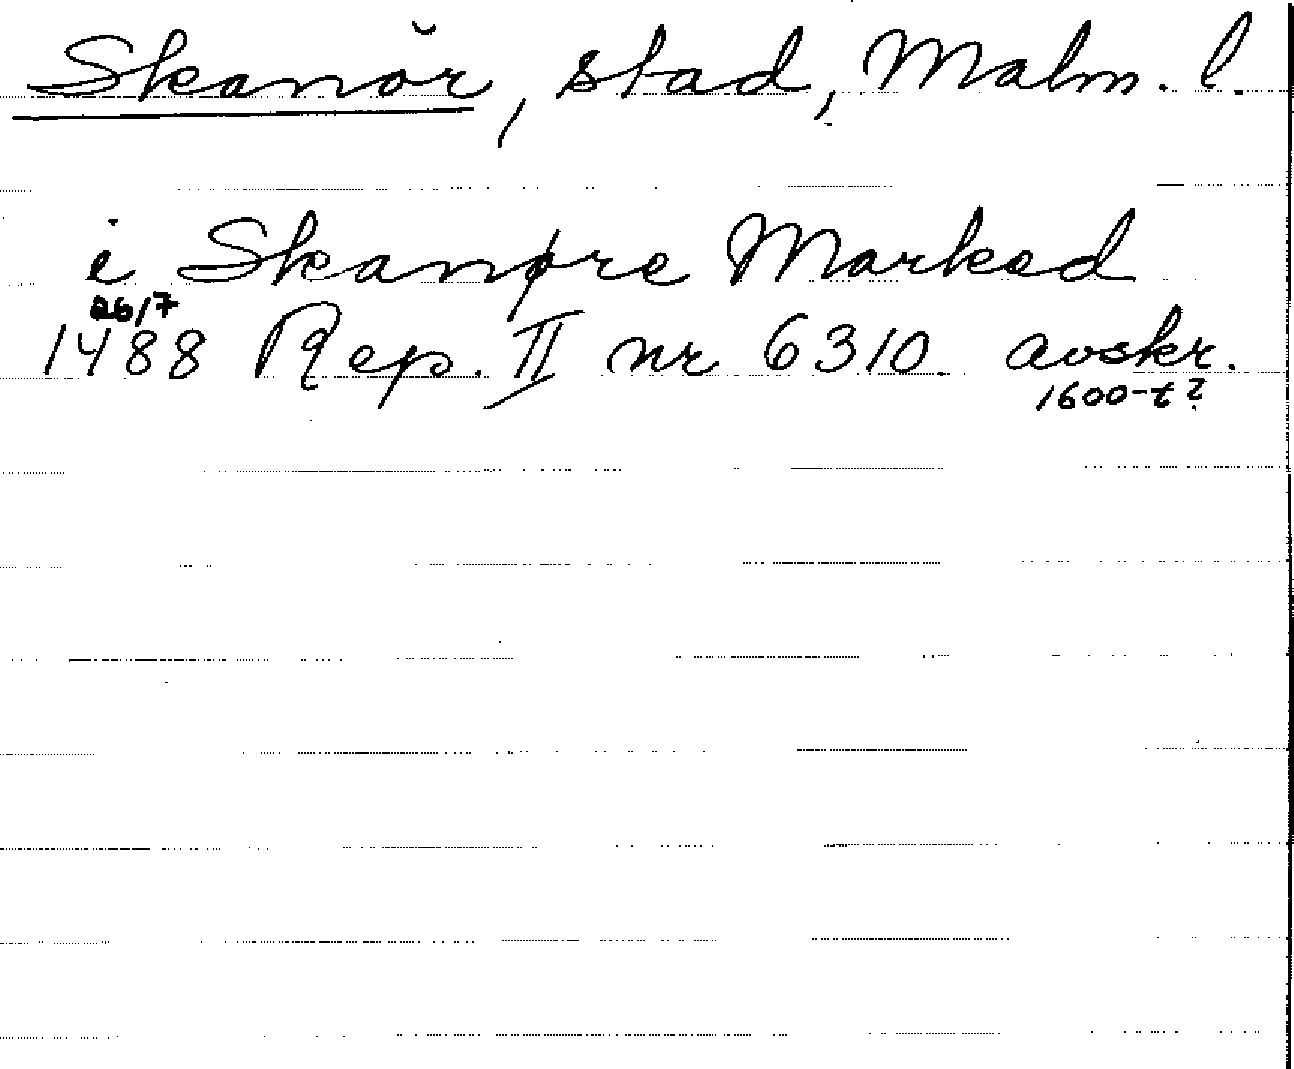 Skanör, stad, Malm. l.
i Skanøre Marked
26/7
1488 Rep. II nr 6310. avskr.
1600-t?